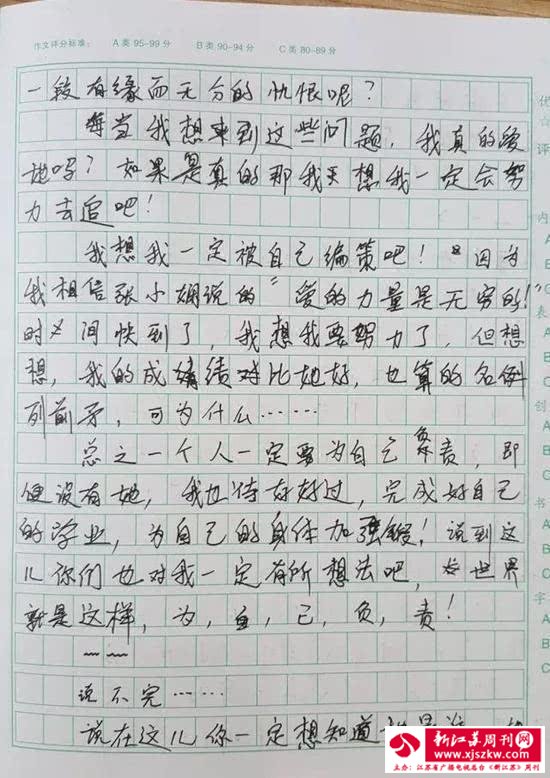 作文评分标准： A类95-99分 B类90-94分 C类80-89分
一段有缘而无分的仇恨呢？
每当我想来到这些问题，我真的爱
她吗？如果是真的那我天想我一定会努
力去追吧！
我想我一定被自己编策吧！因为
我相信张小娴说的"爱的力量是无穷的！"
时间快到了，我想我要努力了，但想
想，我的成绩对比她好，也算的名例
列前矛，可为什么……
总之一个人一定要为自己负责，即
便没有她，我也待好好过，完成好自己
的学业，为自己的身体加强锻！说到这
儿你们也对我一定有所想法吧，世界
就是这样，为，自，己，负，责！
~~
说不完……
说在这儿你一定想知道
评
内
A
B
C
表
A
B
C
创
A
B
C
书
A
B
字
A
B
C
新江苏周刊网
www.xjszkw.com
主办：江苏省广播电视总台《新江苏》周刊